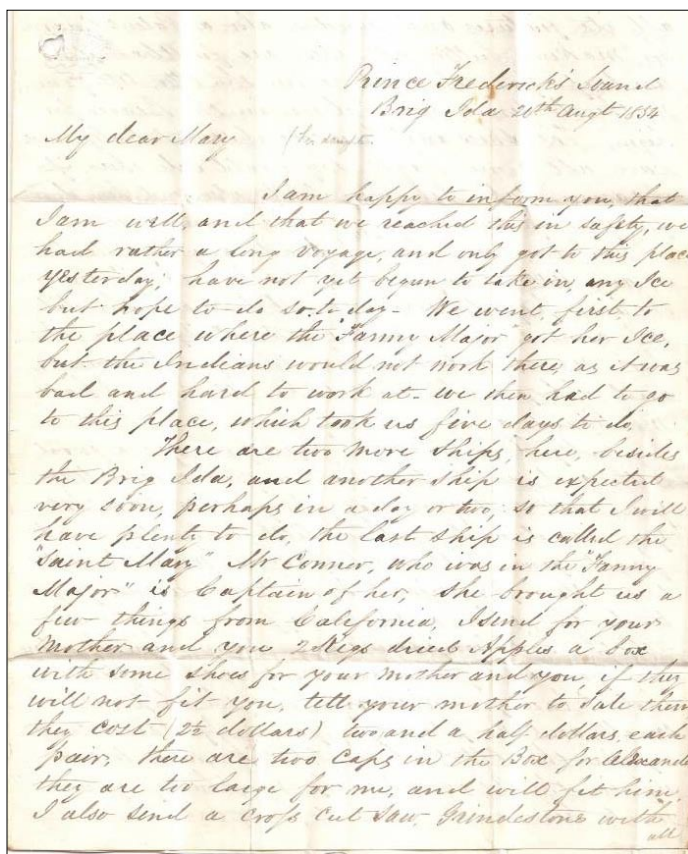 Prince Frederick's Sound
Brig Ida 20th Augt 1854
My dear Mary
I am happy to inform you, that
I am well, and that we reached this in safety, we
had rather a long voyage, and only got to this place
yesterday, have not yet begun to take in, any Ice
but hope to do so, to day - We went first to
the place where the "Fanny Major" got her Ice,
but the Indians would not work there, as it was
bad and hard to work at - we then had to go
to this place, which took us five days to do,
There are two more ships, here, besides
the Brig Ida, and another ship is expected
very soon, perhaps in a day or two, so that I will
have plenty to do, the last ship is called the
"Saint Mary" Mr Conner, who was in the "Fanny
Major" is Captain of her, she brought us a
few things from California, I send for your
Mother and you 2 Kegs dried Apples a box
with some shoes for your mother and you, if they
will not fit you, tell your mother to Sale them
they cost (2½ dollars) two and a half dollars, each
pair, there are two Caps in the Box for Alexande
they are too large for me, and will fit him,
I also send a cross cut saw, Grindestone with
all